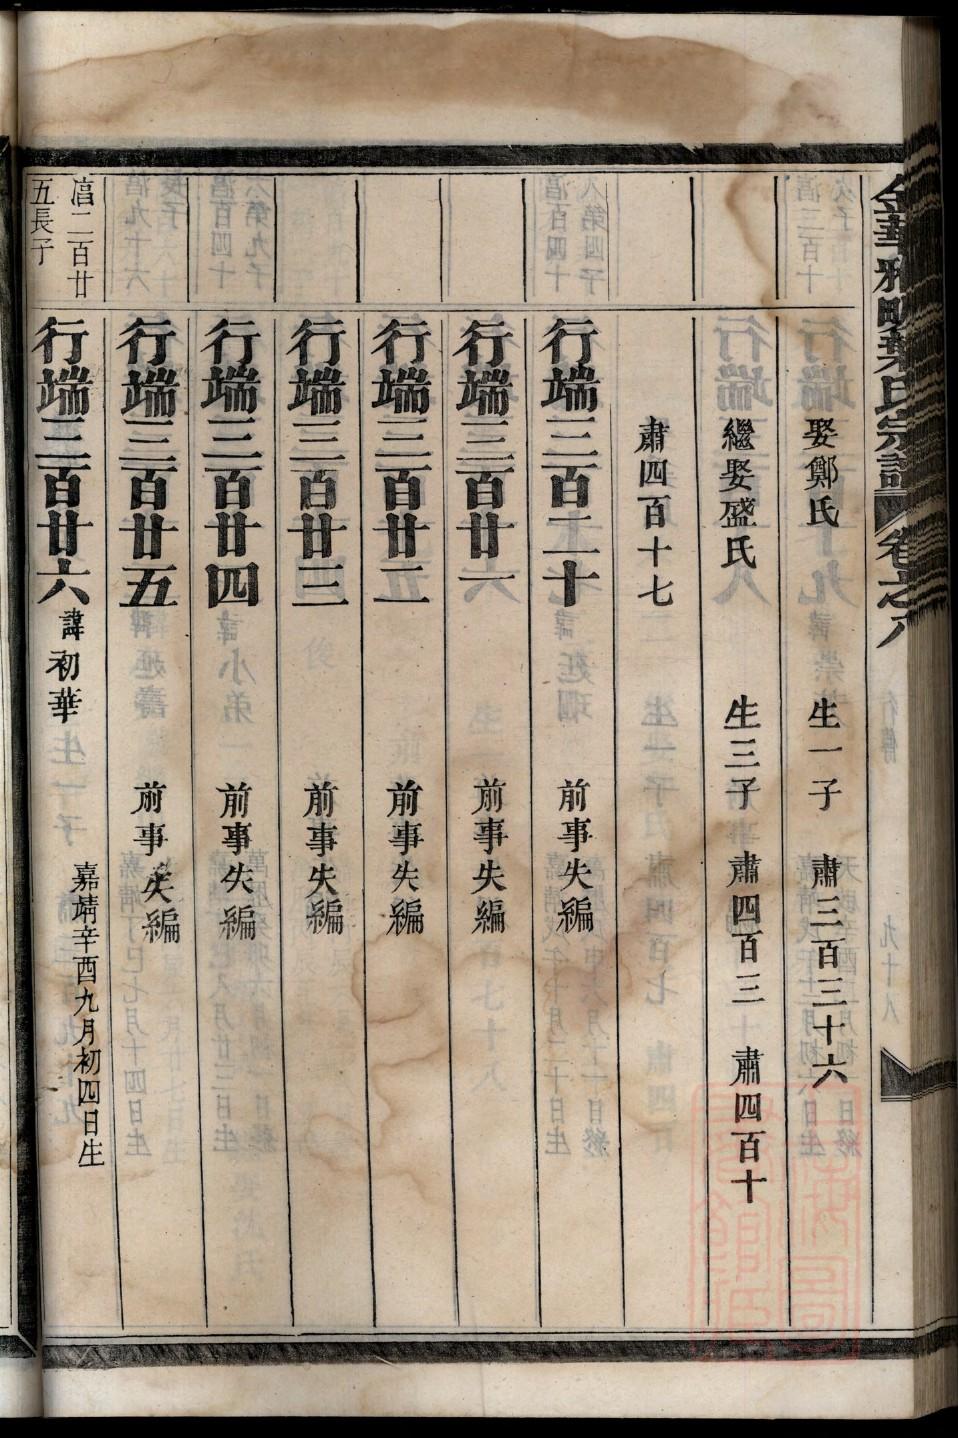 金華雅畈葉氏宗譜 卷之八
娶鄭氏 生一子 肅三百三十六
繼娶盛氏 生三子 肅四百三 肅四百十
肅四百十七
行端三百二十 前事失編
行端三百廿一 前事失編
行端三百廿二 前事失編
行端三百廿三 前事失編
行端三百廿四 前事失編
行端三百廿五 前事失編
二百廿
五長子
行端三百廿六 諱初華 嘉靖辛酉九月初四日生